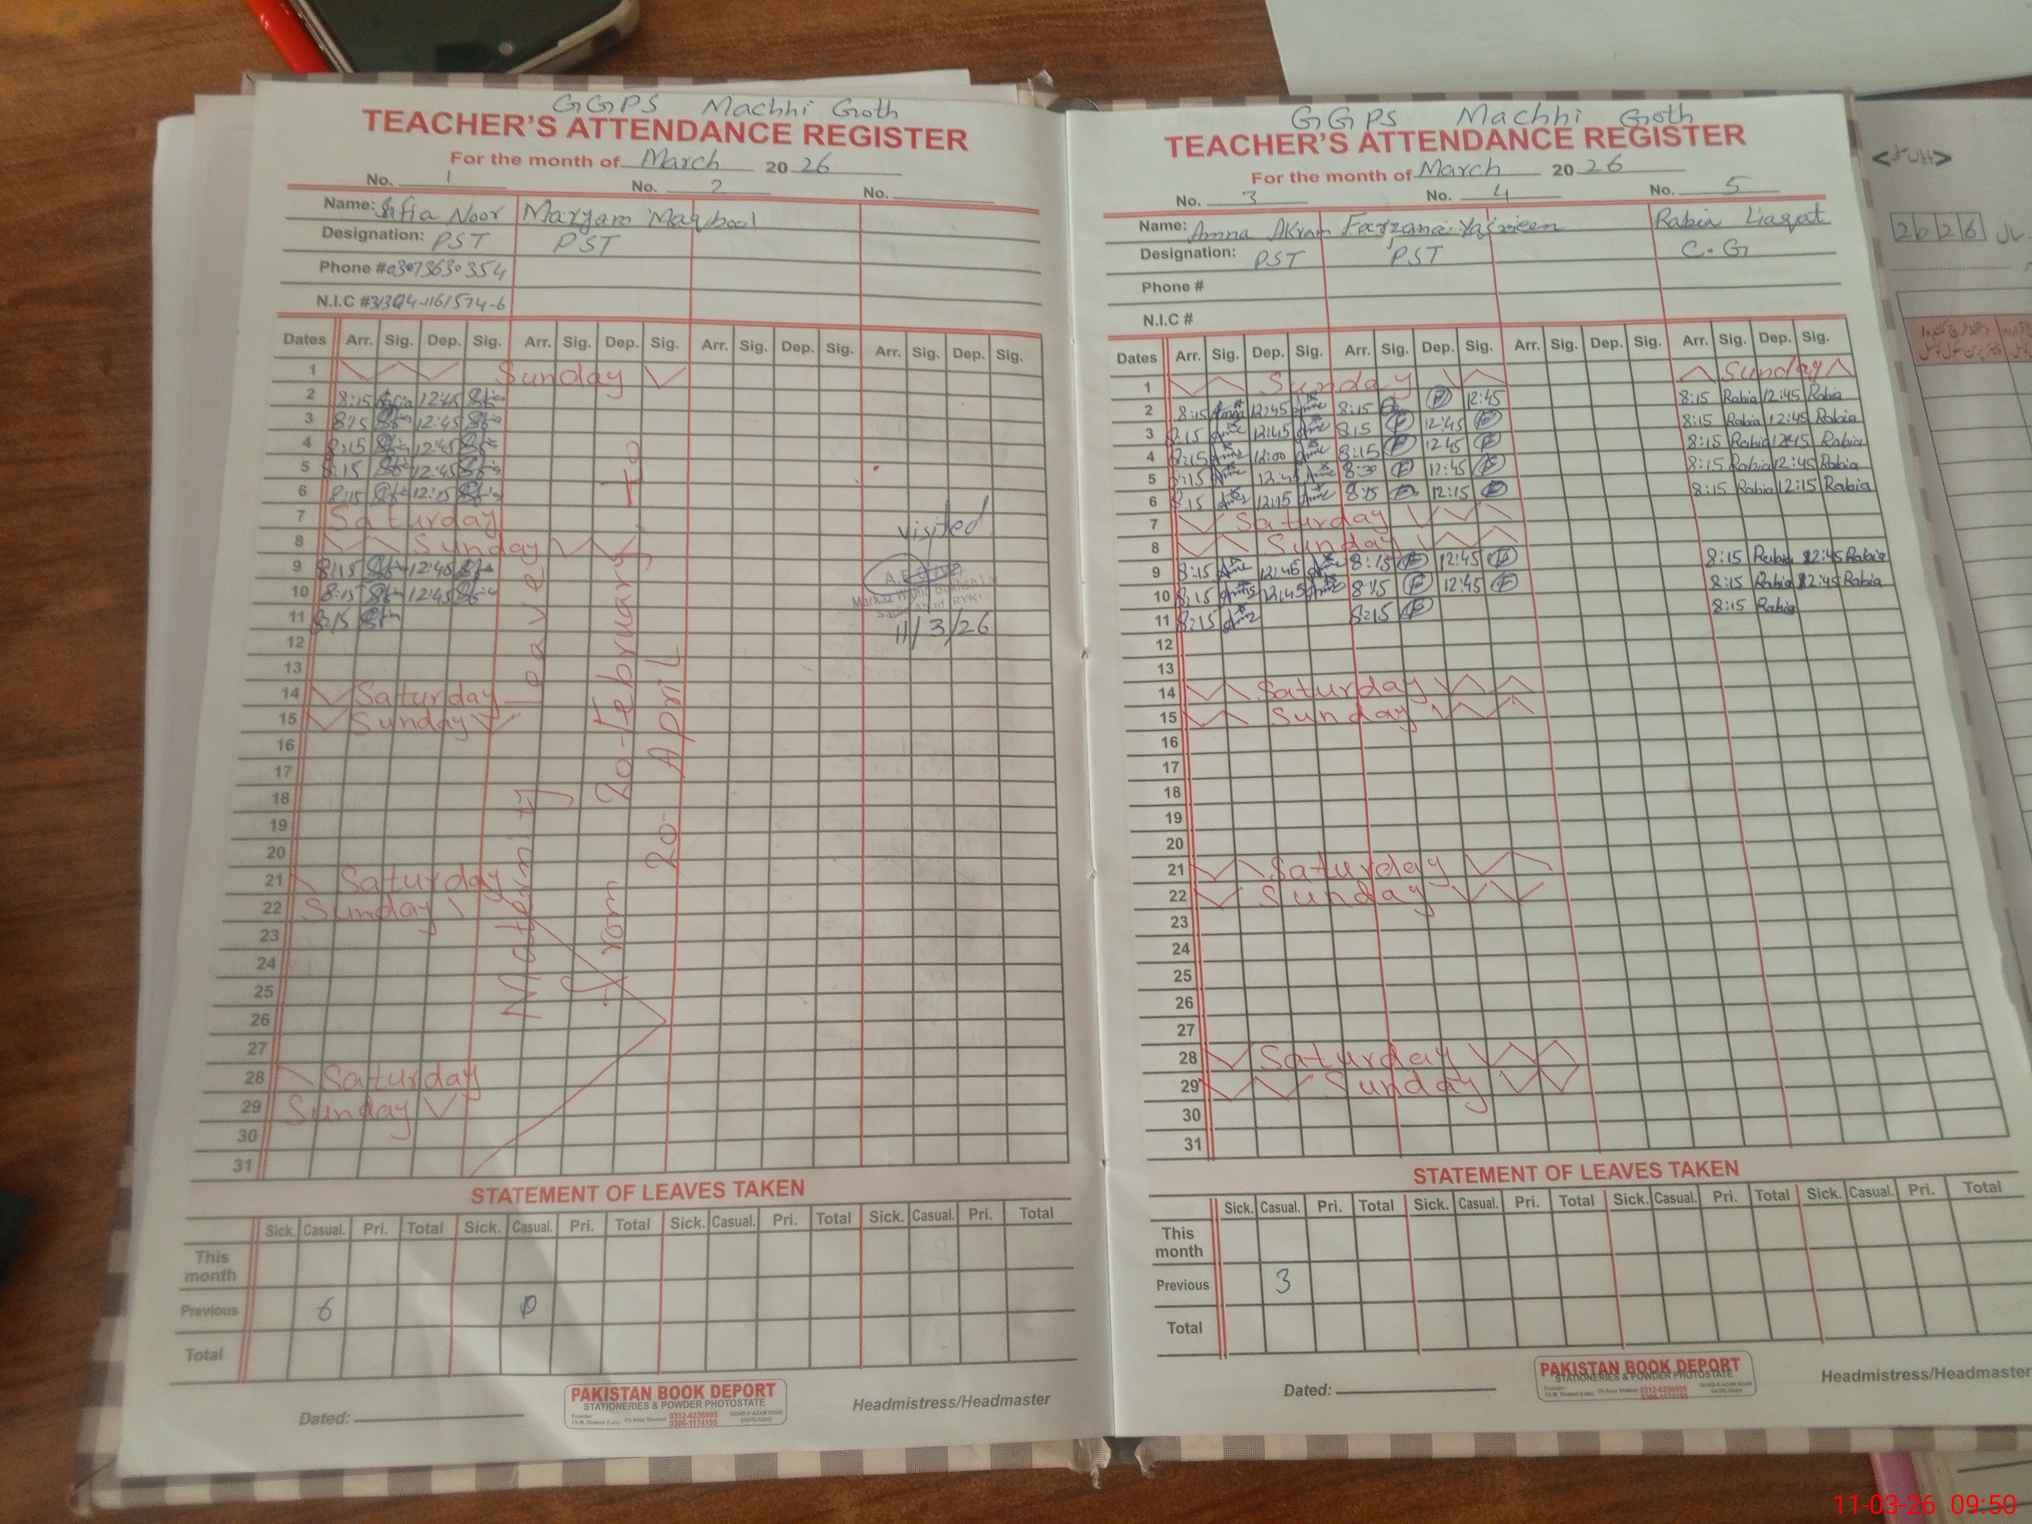 GGPS Machhi Goth
TEACHER'S ATTENDANCE REGISTER
For the month of March 2026
No. 1 No. 2 No.
Name: Safia Noor Maryam Maqbool
Designation: PST PST
Phone #03073630354
N.I.C #
Dates Arr. Sig. Dep. Sig. Arr. Sig. Dep. Sig. Arr. Sig. Dep. Sig. Arr. Sig. Dep. Sig.
1 Sunday
2 8:15 Safia 12:45 Safia
3 8:15 Safia 12:45 Safia
4 8:15 Safia 12:45 Safia
5 8:15 Safia 12:45 Safia
6 8:15 Safia 12:15 Safia
7 Saturday
8 Sunday
9 8:15 Safia 12:45 Safia
10 8:15 Safia 12:45 Safia
11 8:15 Safia
12
13
14 Saturday
15 Sunday
16
17
18
19
20
21 Saturday
22 Sunday
23
24
25
26
27
28 Saturday
29 Sunday
30
31
Maternity leave
from 20-February To
20- April
visited
11/3/26
STATEMENT OF LEAVES TAKEN
Sick. Casual. Pri. Total Sick. Casual. Pri. Total Sick. Casual. Pri. Total Sick. Casual. Pri. Total
This month
Previous 6 0
Total
PAKISTAN BOOK DEPORT
STATIONERIES & POWDER PHOTOSTATE
Dated: Headmistress/Headmaster
GGPS Machhi Goth
TEACHER'S ATTENDANCE REGISTER
For the month of March 2026
No. 3 No. 4 No. 5
Name: Amna Akram Farzana Yasmeen Rabia Liaqat
Designation: PST PST C.G
Phone #
N.I.C #
Dates Arr. Sig. Dep. Sig. Arr. Sig. Dep. Sig. Arr. Sig. Dep. Sig. Arr. Sig. Dep. Sig.
1 Sunday Sunday
2 8:15 Amna 12:45 Amna 8:15 F F 12:45 8:15 Rabia 12:45 Rabia
3 8:15 Amna 12:45 Amna 8:15 F 12:45 F 8:15 Rabia 12:45 Rabia
4 8:15 Amna 12:00 Amna 8:15 F 12:45 F 8:15 Rabia 12:45 Rabia
5 8:15 Amna 12:45 Amna 8:20 F 12:45 F 8:15 Rabia 12:45 Rabia
6 8:15 Amna 12:15 Amna 8:15 F 12:15 F 8:15 Rabia 12:15 Rabia
7 Saturday
8 Sunday
9 8:15 Amna 12:45 Amna 8:15 F 12:45 F 8:15 Rabia 12:45 Rabia
10 8:15 Amna 12:45 Amna 8:15 F 12:45 F 8:15 Rabia 12:45 Rabia
11 8:15 Amna 8:15 F 8:15 Rabia
12
13
14 Saturday
15 Sunday
16
17
18
19
20
21 Saturday
22 Sunday
23
24
25
26
27
28 Saturday
29 Sunday
30
31
STATEMENT OF LEAVES TAKEN
Sick. Casual. Pri. Total Sick. Casual. Pri. Total Sick. Casual. Pri. Total Sick. Casual. Pri. Total
This month
Previous 3
Total
PAKISTAN BOOK DEPORT
STATIONERIES & POWDER PHOTOSTATE
Dated: Headmistress/Headmaster
2026
11-03-26 09:50